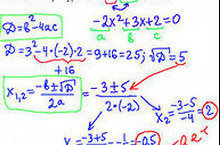 D=b²-4ac
-2x²+3x+2=0
a b c
D=3²-4·(-2)·2=9+16=25; √D=5
+16
x₁,₂=(-b±√D)/2a=(-3±5)/(2·(-2))
x₂=(-3-5)/(-4)=2
-3+5